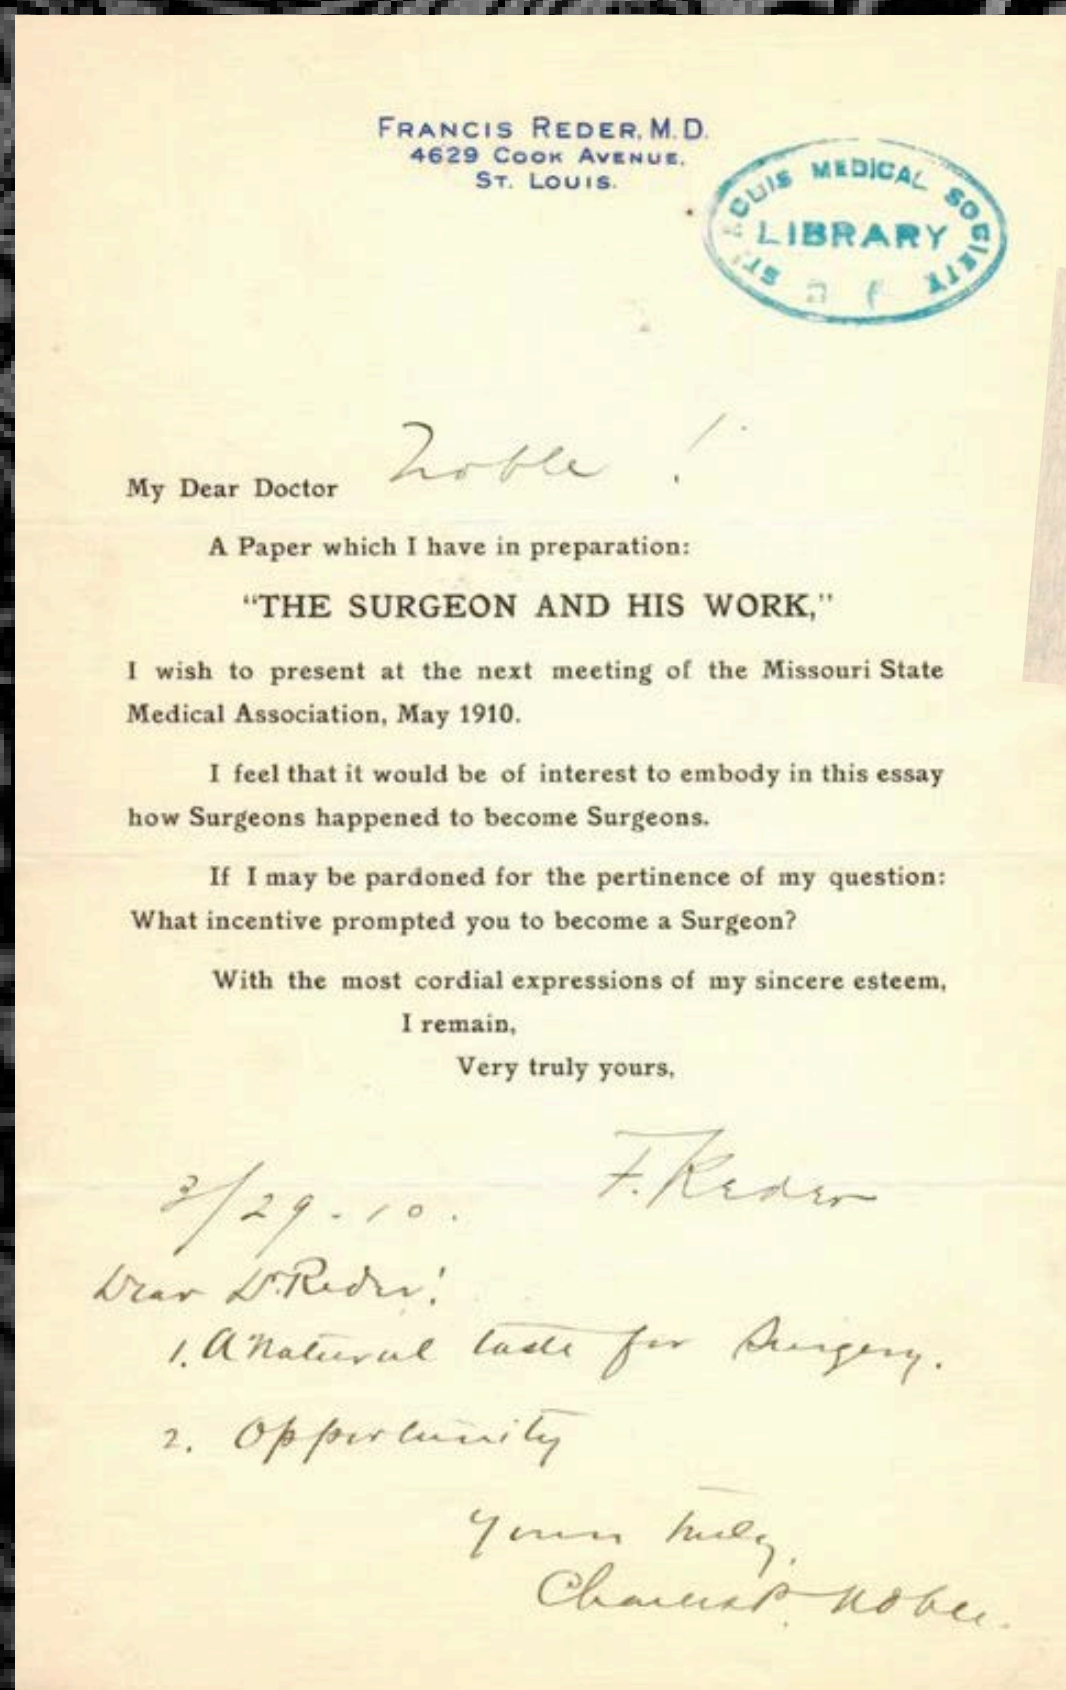 FRANCIS REDER, M.D.
4629 COOK AVENUE,
ST. LOUIS.
ST. LOUIS MEDICAL SOCIETY
LIBRARY
My Dear Doctor Noble!
A Paper which I have in preparation:
"THE SURGEON AND HIS WORK,"
I wish to present at the next meeting of the Missouri State
Medical Association, May 1910.
I feel that it would be of interest to embody in this essay
how Surgeons happened to become Surgeons.
If I may be pardoned for the pertinence of my question:
What incentive prompted you to become a Surgeon?
With the most cordial expressions of my sincere esteem,
I remain,
Very truly yours,
F. Reder
3/29-10.
Dear Dr. Reder!
1. A natural taste for Surgery.
2. Opportunity
Yours truly,
Charles P. Noble.